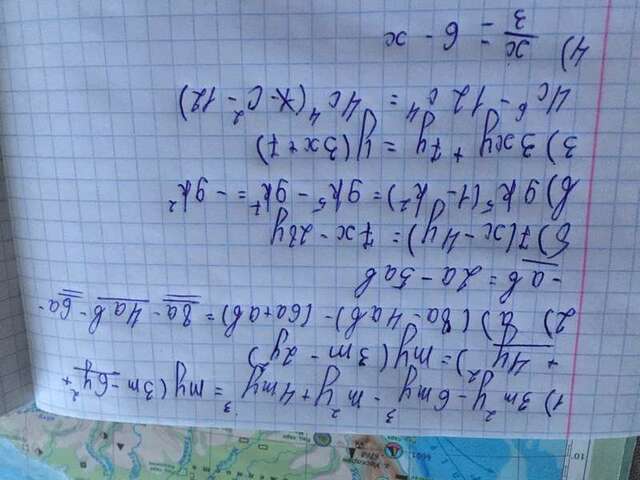 1) 3m²y - 6my³ - m²y + 4my³ = my(3m - 6y² +
+ 4y²) = my(3m - 2y²)
2) а) (8a - 4ab) - (6a + ab) = 8a - 4ab - 6a -
- ab = 2a - 5ab
б) 7(x - 4y) = 7x - 28y
в) 9k⁵(1 - k²) = 9k⁵ - 9k⁷ = - 9k²
3) 3xy + 7y = y(3x + 7)
4c⁶ - 12c⁴ = 4c⁴(x - c² - 12)
4) x/3 = 6 - x